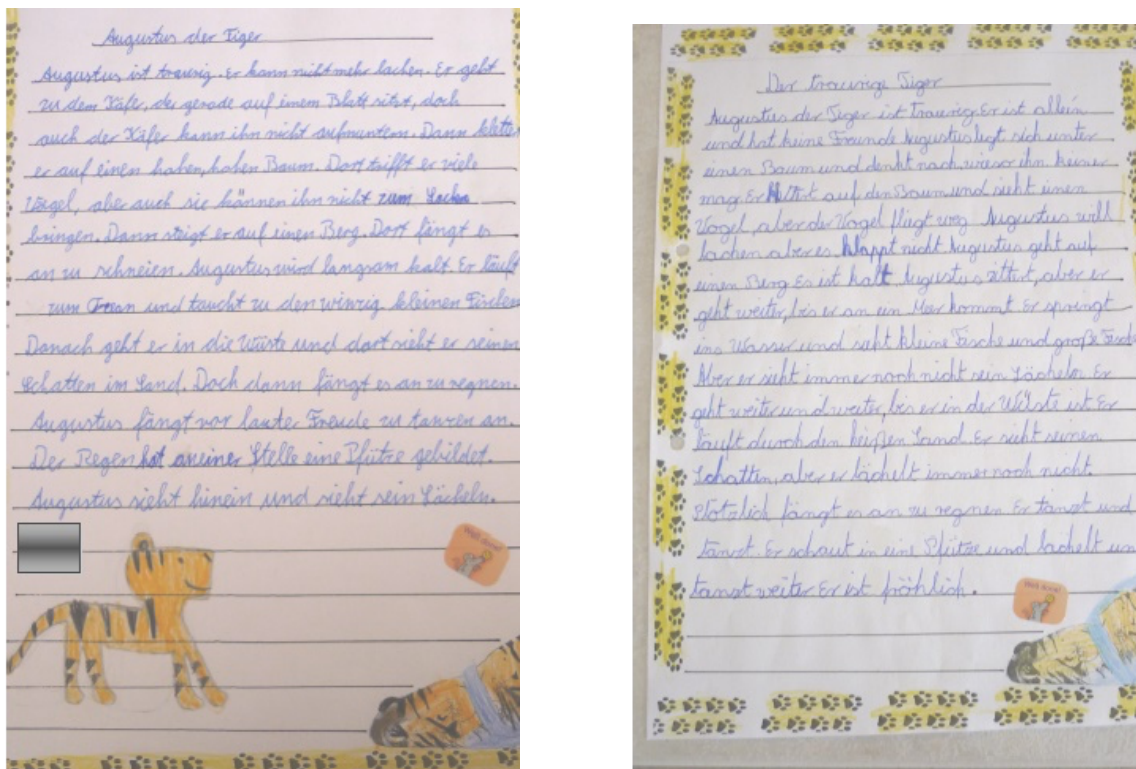 Augustus der Tiger
Augustus ist traurig. Er kann nicht mehr lachen. Er geht
zu dem Käfer, der gerade auf einem Blatt sitzt, doch
auch der Käfer kann ihn nicht aufmuntern. Dann klette
er auf einen hohen, hohen Baum. Dort trifft er viele
Vögel, aber auch sie können ihn nicht zum Lachen
bringen. Dann steigt er auf einen Berg. Dort fängt es
an zu schneien. Augustus wird langsam kalt. Er läuft
zum Ozean und taucht zu den winzig kleinen Fischen
Danach geht er in die Wüste und dort sieht er seinen
Schatten im Sand. Doch dann fängt es an zu regnen.
Augustus fängt vor lauter Freude zu tanzen an.
Der Regen hat an einer Stelle eine Pfütze gebildet.
Augustus sieht hinein und sieht sein Lächeln.
Well done!
Der traurige Tiger
Augustus der Tiger ist Traurig. Er ist allein
und hat keine Freunde Augustus legt sich unter
einen Baum und denkt nach, wieso ihn keiner
mag. Er klettert auf den Baum und sieht einen
Vogel, aber der Vogel fliegt weg Augustus will
lachen aber es klappt nicht Augustus geht auf
einen Berg Es ist kalt Augustus zittert, aber er
geht weiter, bis er an ein Meer kommt Er springt
ins Wasser und seht kleine Fische und große Fisch
Aber er sieht immer noch nicht sein Lächeln Er
geht weiter und weiter, bis er in der Wüste ist Er
läuft durch den heißen Sand. Er sieht seinen
Schatten, aber er lächelt immer noch nicht.
Plötzlich fängt es an zu regnen Er tanzt und
tanzt. Er schaut in eine Pfütze und lächelt un
tanzt weiter Er ist fröhlich.
Well done!